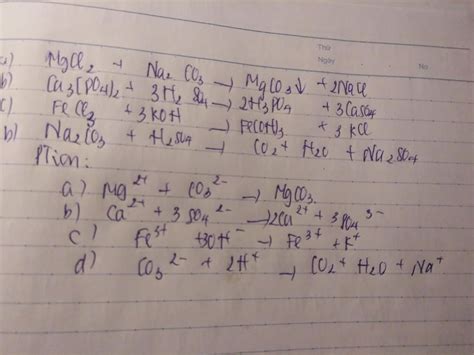 Thứ
Ngày No
a) MgCl2 + Na2CO3 → MgCO3↓ + 2NaCl
b) Ca3(PO4)2 + 3H2SO4 → 2H3PO4 + 3CaSO4
c) FeCl3 + 3KOH → Fe(OH)3 + 3KCl
b) Na2CO3 + H2SO4 → CO2 + H2O + Na2SO4
PTion:
a) Mg2+ + CO3 2- → MgCO3
b) Ca2+ + 3SO4 2- → 2Ca2+ + 3SO4 3-
c) Fe3+ +3OH- → Fe3+ + K+
d) CO3 2- + 2H+ → CO2 + H2O + Na+